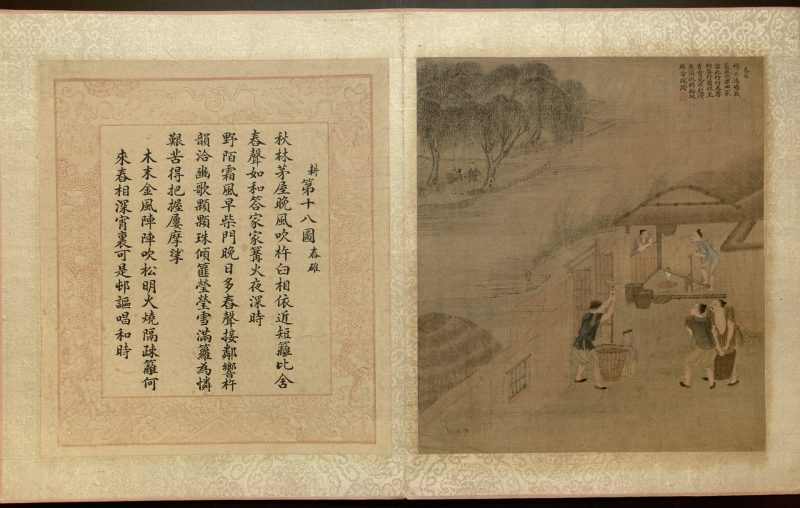 耕第十八圖舂碓
秋林茅屋晚風吹杵臼相依近短籬比舍
舂聲如和答家家篝火夜深時
野陌霜風早柴門晚日多舂聲接鄰響杵
韻洽豳歌顆顆珠傾篚瑩瑩雪滿籮為憐
艱苦得把握屢摩挲
木末金風陣陣吹松明火燒隔疎籬何
來舂相深宵裏可是邨謳唱和時